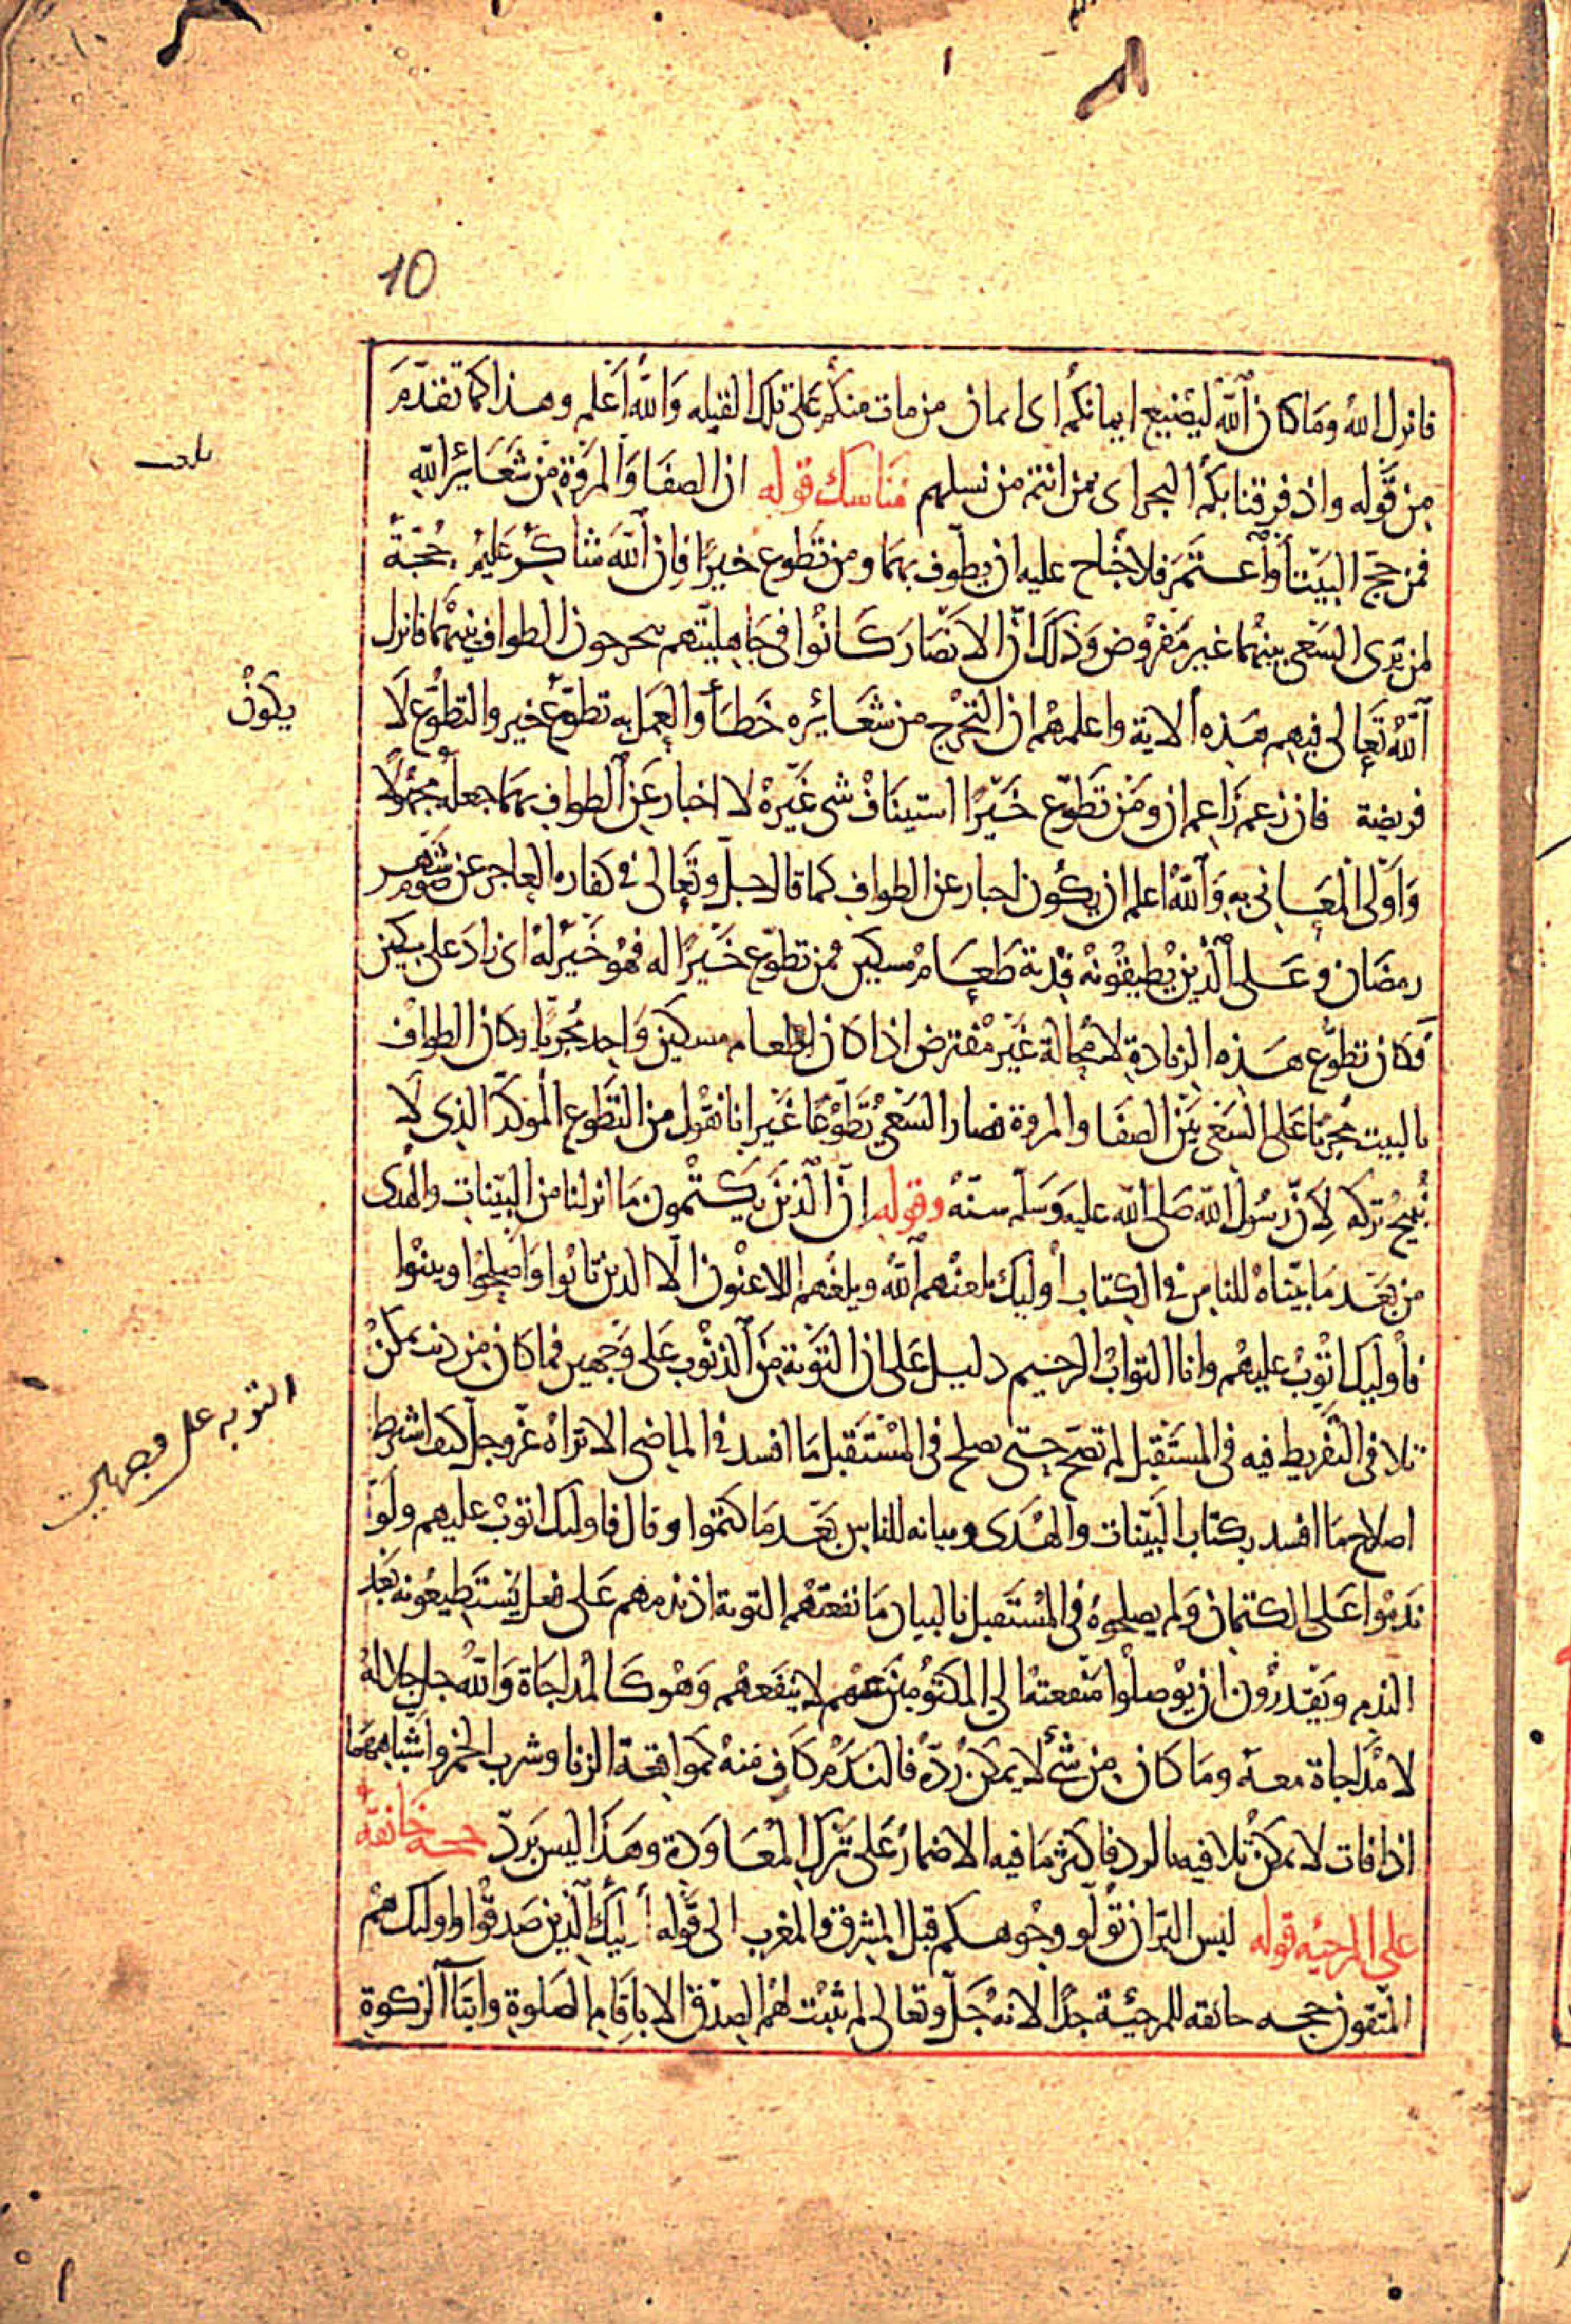 10
فانزل الله وما كان الله ليضيع ايمانكم اى ايمان من مات منكم على تلك القبله والله أعلم وهذا كما تقدّم
من قوله واذ فرقنا بكم البحر اى بمن انتم من نسلهم مناسك قوله ان الصفا والمروة من شعائر الله
فمن حج البيت أو اعتمر فلا جناح عليه ان يطوف بهما ومن تطوع خيرًا فإن الله شاكر عليم حُجّة
لمن يرى السعى بينهما غير مفروض وذلك انّ الانصار كانوا فى جاهليتهم يتحرجون الطواف بينهما فانزل
الله تعالى فيهم هذه الاية واعلمهم ان التحرّج من شعائره خطأ والعمل به تطوّع خير والتطوّع لا
يكون
فريضة فان زعم زاعم ان ومن تطوّع خيرًا استيناف شى غيره لا اخبار عن الطواف بهما جعله محتملًا
وأولى المعانى به والله اعلم ان يكون اخبار عن الطواف كما قال جل وتعالى فى كفاره العاجز عن صوم شهر
رمضان وعلى الذين يطيقونه فدية طعام مسكين فمن تطوّع خيرًا له فهو خير له اى زاد على مسكين
فكان تطوّع هذه الزيادة لا محالة غير مفترض اذا كان اطعام مسكين واحد مجزيًا وكان الطواف
بالبيت مجزيًا على السعى بين الصفا والمروة فصار السعى تطوّعًا غير انا نقول من التطوع المؤكّد الذى لا
نُبيح تركه لأنّ رسول الله صلى الله عليه وسلم سنّه وقوله إن الذين يكتمون ما انزلنا من البينات والهدى
من بعد ما بيّناه للناس فى الكتاب أوليك يلعنهم الله ويلعنهم اللاعنون الا الذين تابوا وأصلحوا وبينوا
فأوليك اتوب عليهم وانا التواب الرحيم دليل على ان التوبة من الذنوب على وجهين فما كان من ذنب يمكن
التوبه على وجهين
تلافى التفريط فيه فى المستقبل لم تصح حتى يصلح فى المستقبل ما افسد فى الماضى الا تراه عزّ وجلّ كيف اشرط
اصلاح ما افسد بكتاب البينات والهدى وبيانه للناس بعد ما كتموا وقال فاوليك اتوب عليهم ولو
ندموا على الكتمان ولم يصلحوه فى المستقبل بالبيان ما نفعتهم التوبة اذ ندمهم على فعل يستطيعونه بعد
الندم ويقدرون ان يوصلوا منفعتها الى المكتومين عنهم لا ينفعهم وهو كالمداجاة والله جل جلاله
لا مداجاة معه وما كان من شئ لا يمكن ردّه فالندم كاف منه كمواقعة الزنا وشرب الخمر وأشباههما
اذا فات لا يمكن تلافيه بالرد فاكثر ما فيه الاضمار على ترك المعاودة وهذا ليس بردّ حجه خانقة
على المرجئه قوله ليس البر ان تولو وجوهكم قبل المشرق والمغرب الى قوله أوليك الذين صدقوا واوليك هم
المتقون حجه خانقه للمرجئية جدًا لانه جلّ وتعالى لم يثبت لهم الصدق الا باقام الصلوة وايتا الزكوة